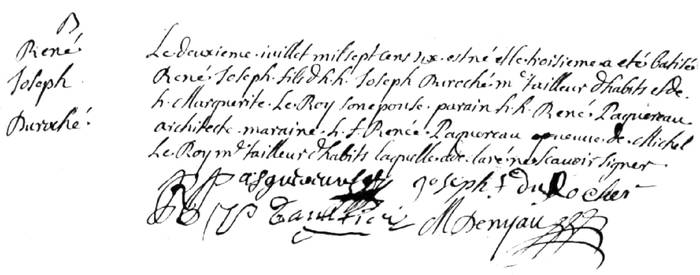 B
René
Joseph
Duroché
Le deuxieme juillet mil sept cens six est né et le troisieme a été batisé
René Joseph fils d h.h. Joseph Duroché me tailleur d'habits et de
h. Marguerite Le Roy son epouse parain h.h. René Paquereau
architecte maraine h.f Renée Paquereau veuve de Michel
Le Roy md tailleur d'habits laquelle a declaré ne scavoir signer
R Pasquereau Joseph du Rocher
M Denyau